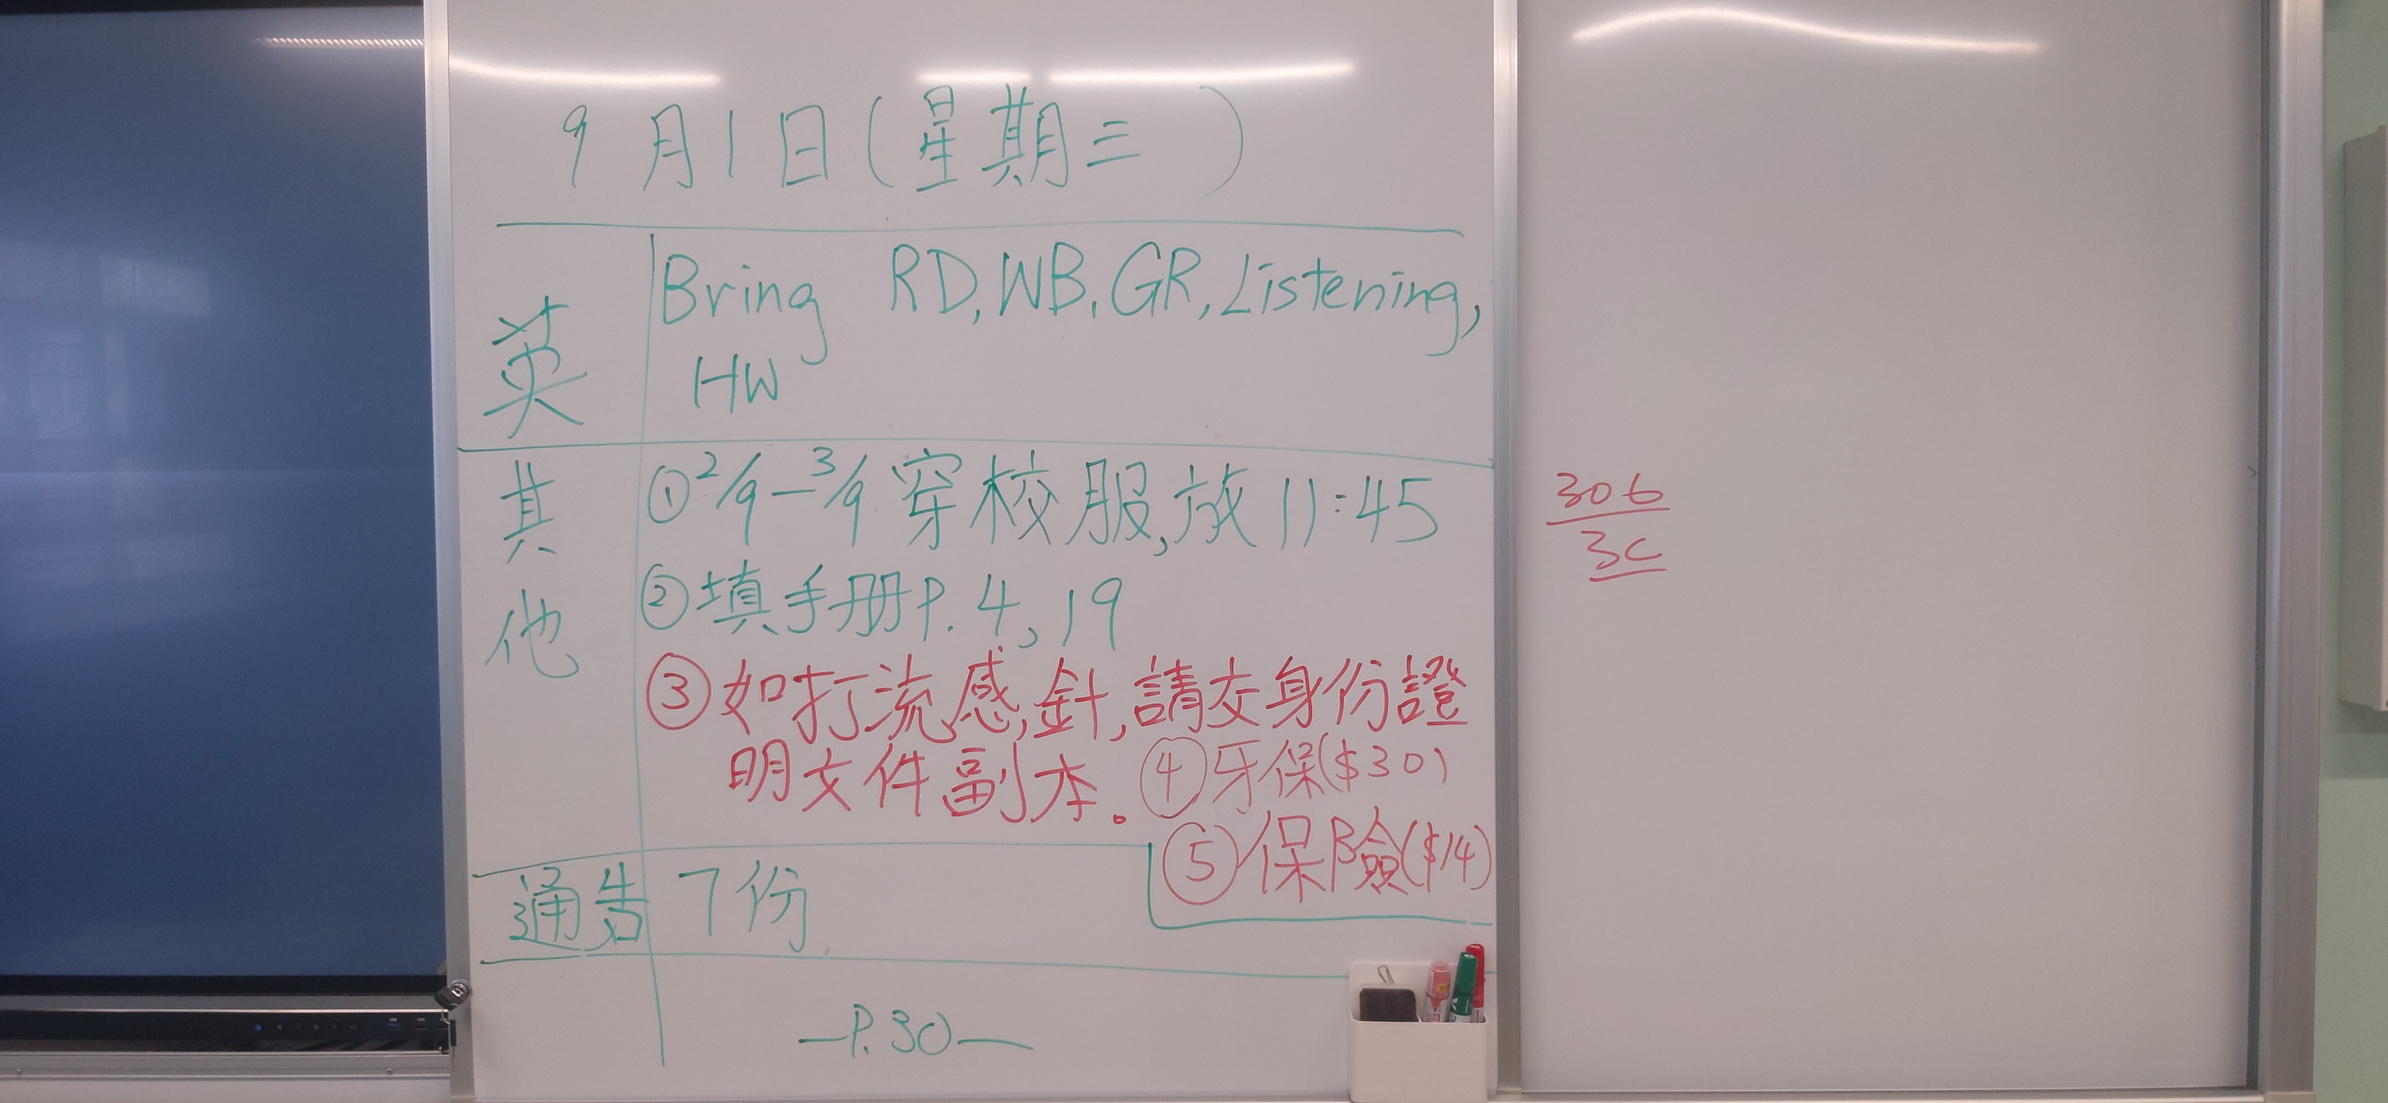 9月1日(星期三 )
英
Bring RD, WB, GR, Listening,
HW
其他
①2/9-3/9穿校服,放11:45
②填手册P. 4, 19
③如打流感針,請交身份證
明文件副本。④牙保($30)
⑤保險($14)
通告 7份
—P.30—
306
3C